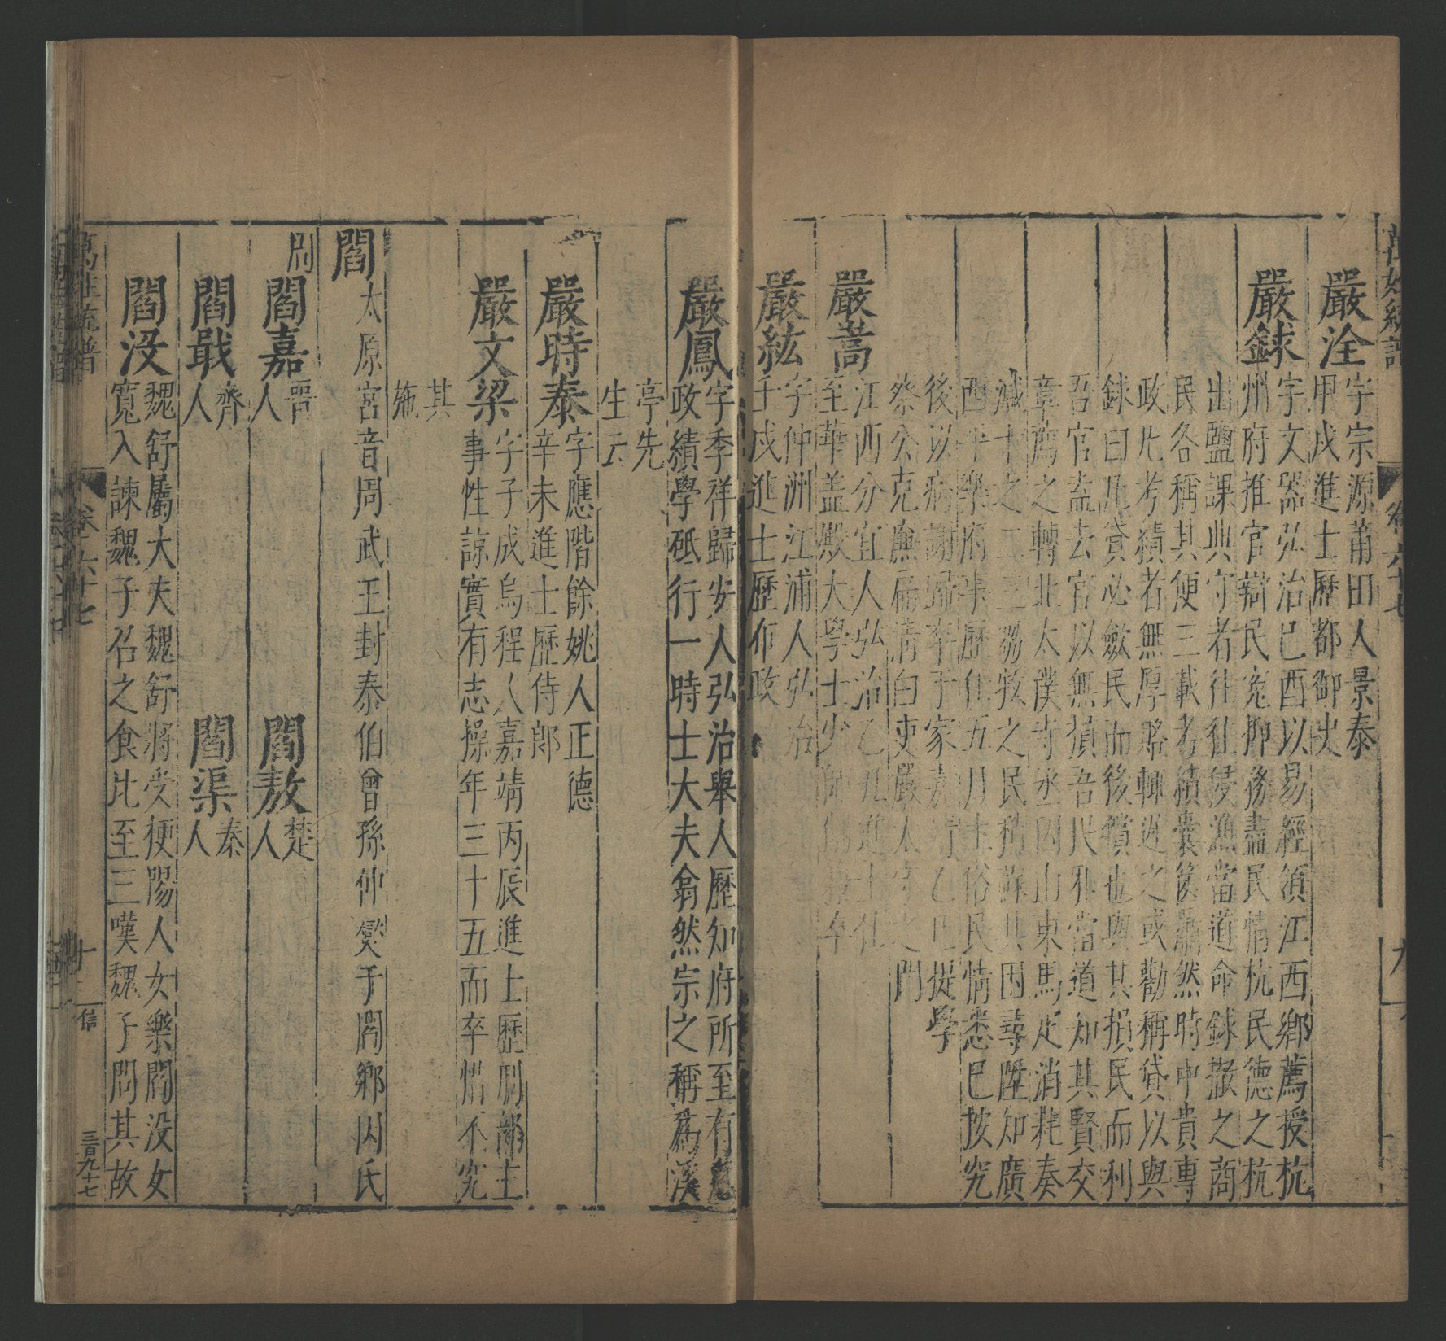 萬姓統譜
卷六十七
嚴洤
字宗源莆田人景泰
甲戌進士歷都御史
嚴銶
字文器弘治己酉以易經領江西鄉薦授杭
州府推官辯民寃抑務盡民情杭民德之杭
出鹽課典守者往往侵漁當道命銶撤之商
民各稱其便三載考績囊篋蕭然時中貴專
政凡考績者無厚賂輒遲之或勸稱貸以與
銶曰凡貸必斂民而後償也與其損民而利
吾官盍去官以無損吾民邪當道知其賢交
章薦之轉北太僕寺丞因山東馬疋消耗奏
減十之二三芻牧之民稍蘇其困尋陞知廣
西平樂府事歷任五月土俗民情悉已按究
後以病謝歸卒于家嘉靖乙巳提學
蔡公克廉扁清白吏嚴太守之門
嚴蒿
江西分宜人弘治乙丑進士仕
至華蓋殿大學士少師
嚴紘
字仲洲江浦人弘治
壬戌進士歷布政
嚴鳳
字季祥歸安人弘治舉人歷知府所至有
政績學砥行一時士大夫翕然宗之稱為溪
亭先
生云
嚴時泰
字應階餘姚人正德
辛未進士歷侍郎
嚴文梁
字子成烏程人嘉靖丙辰進士歷刑部主
事性諒實有志操年三十五而卒惜不究
其
施
閻
太原宮音周武王封泰伯曾孫仲奕于閻鄉因氏
閻嘉
晋
人
閻敖
楚
人
閻戢
齊
人
閻渠
秦
人
閻沒
魏舒屬大夫魏舒將受梗陽人女樂閻沒女
寬入諫魏子召之食比至三嘆魏子問其故
萬姓統譜
卷六十七
三百九十七